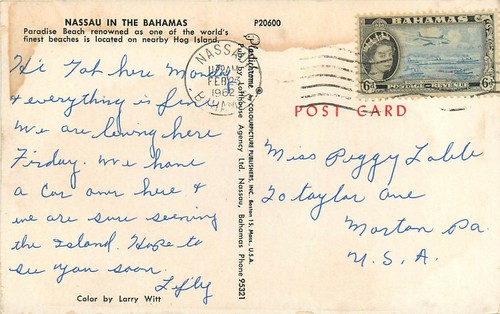 NASSAU IN THE BAHAMAS
P20600
Paradise Beach renowned as one of the world's
finest beaches is located on nearby Hog Island.
Hi Got here Monday
& everything is fine
We are leaving here
Firday. We have
a Car over here &
we are sure seeing
the Island. Hope to
see you soon.
Color by Larry Witt
Plastichrome by COLOURPICTURE PUBLISHERS, INC. Boston 15, Mass., U.S.A.
Pub. by Lofthouse Agency Ltd. Nassau, Bahamas Phone 95321
NASSAU
FEB
1962
BAHAMAS
6d 6d
POSTAGE REVENUE
POST CARD
Miss Peggy
20 taylor ave
Morton Pa.
U.S.A.